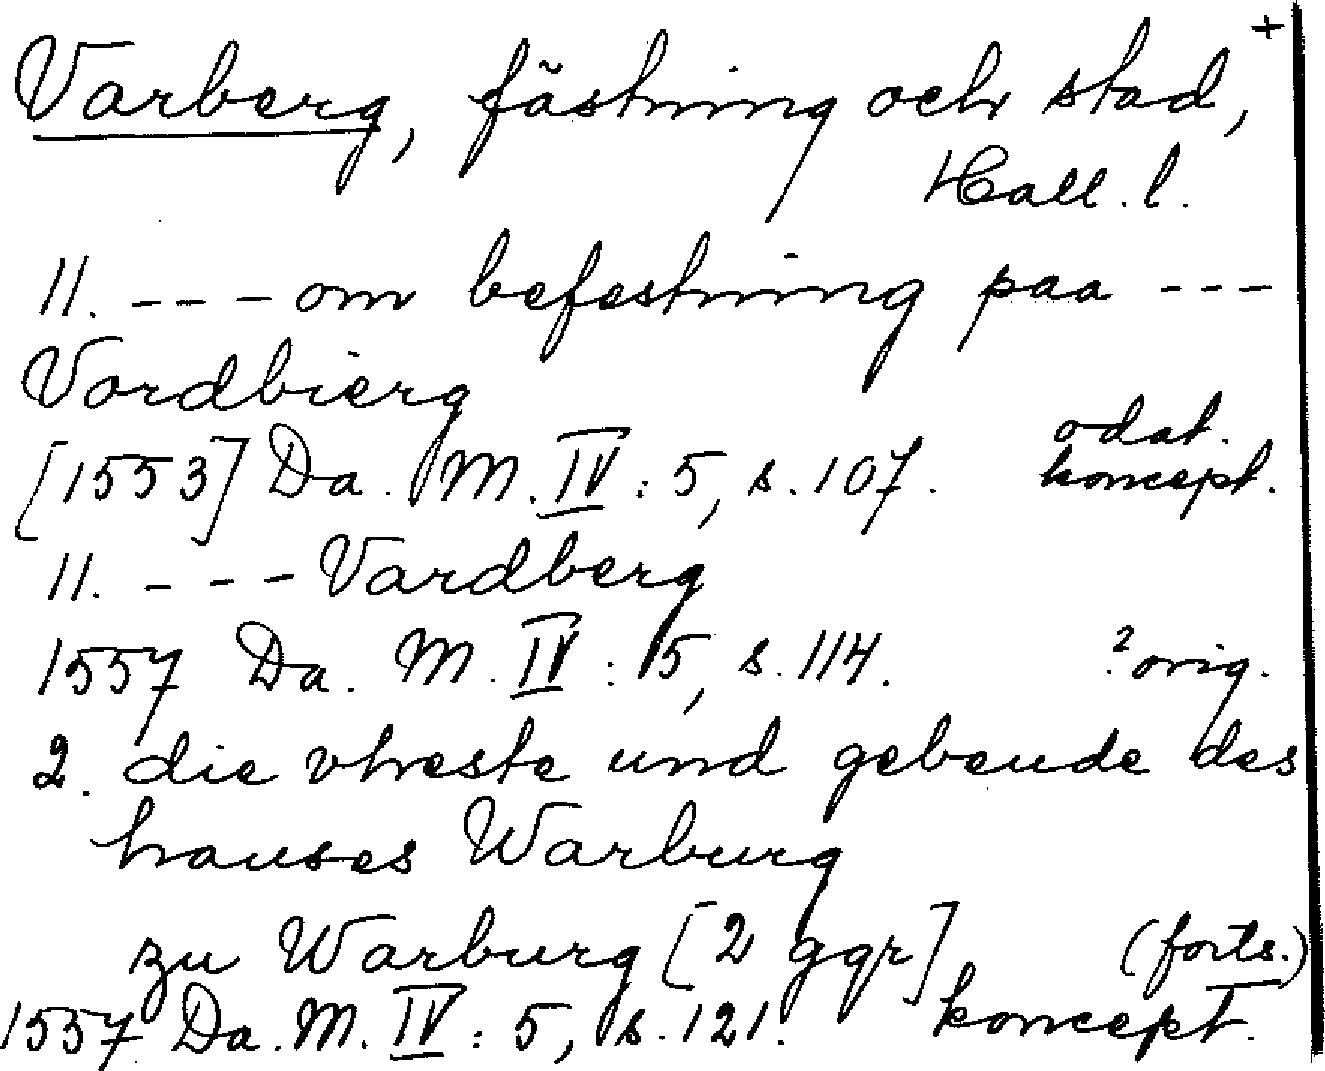 +
Varberg, fästning och stad,
Hall. l.
11. --- om befestning paa ---
Vardbierg
[1553] Da. M. IV: 5, s. 107. odat. koncept.
11. --- Vardberg
1557 Da. M. IV: 5, s. 114. ? orig.
2. die vhreste und gebeude des
hauses Warburg
zu Warburg [2 ggr] (forts.)
1557 Da. M. IV: 5, s. 121. koncept.